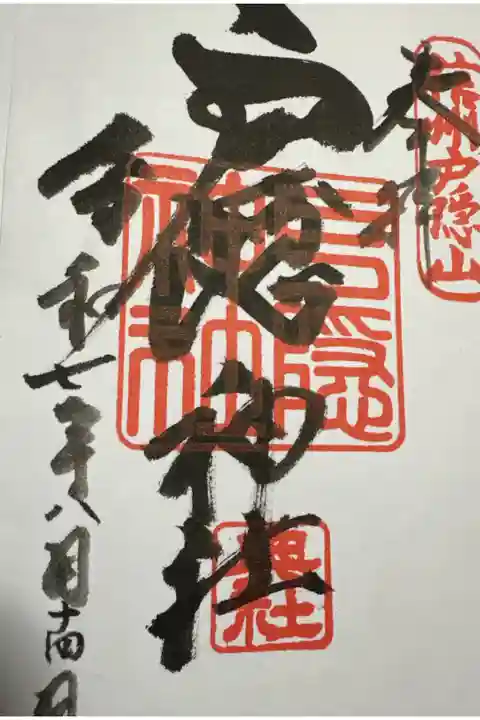 奉拝
信州戸隠山
戸隠神社
戸隠神社
奥社
令和七年八月十四日